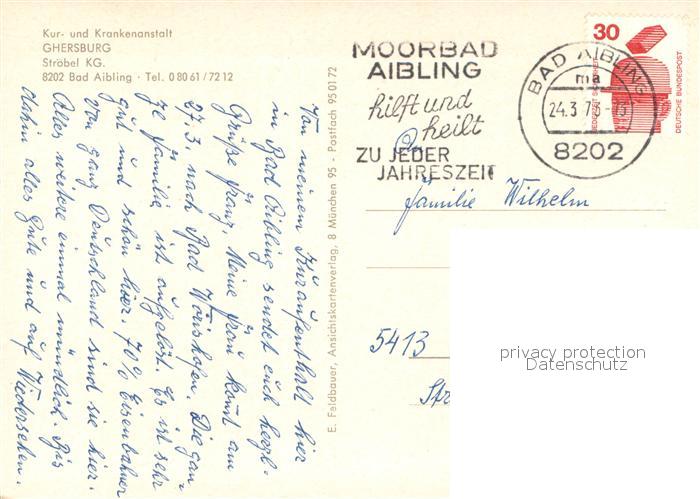 Kur- und Krankenanstalt
GHERSBURG
Ströbel KG.
8202 Bad Aibling · Tel. 0 80 61 / 72 12
Von meinem Kuraufenthalt hier
in Bad Aibling sendet euch herzl.
Grüße Franz. Meine Frau kommt am
27.3. nach Bad Wörishofen. Die gan-
ze Familie ist aufgelöst. Es ist sehr
gut und schön hier. 70% Eisenbahner
von ganz Deutschland sind sie hier.
Alles weitere einmal mündlich. Bis
dahin alles Gute und auf Wiedersehen.
E. Feldbauer, Ansichtskartenverlag, 8 München 95 - Postfach 95 01 72
MOORBAD
AIBLING
hilft und
heilt
ZU JEDER
JAHRESZEIT
BAD AIBLING
ma
24.3.75
8202
30
DEUTSCHE BUNDESPOST
Familie Wilhelm
5413
privacy protection
Datenschutz